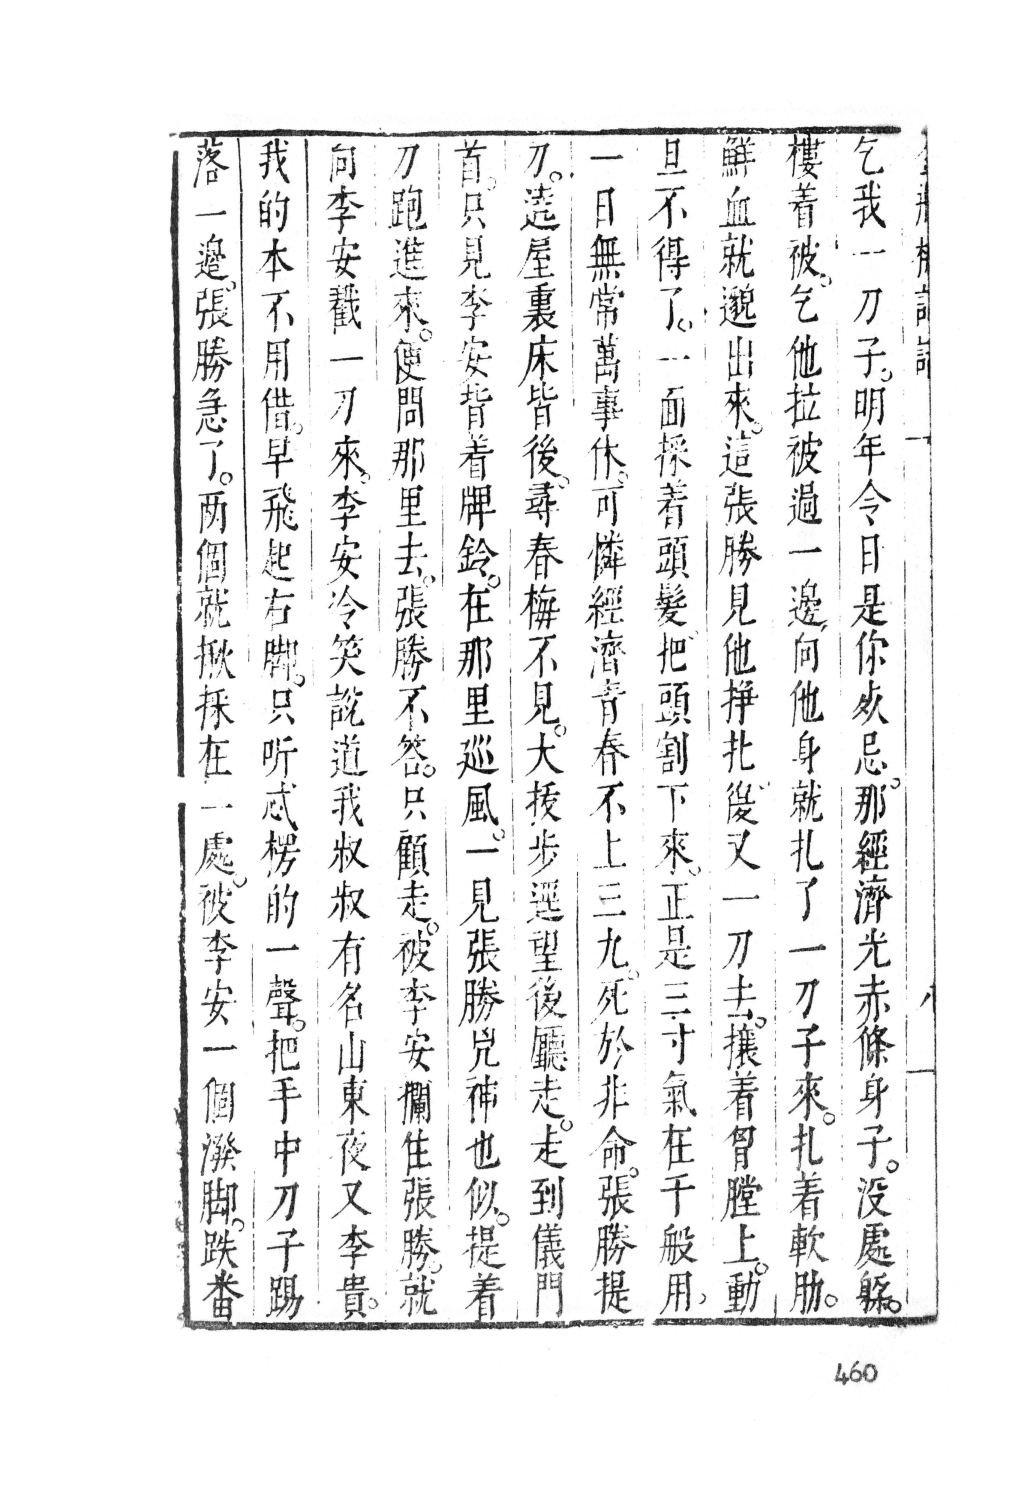 乞我一刀子。明年今日是你死忌。那經濟光赤條身子。没處躲。
摟着被。乞他拉被過一邊。向他身就扎了一刀子來。扎着軟肋。
鮮血就邈出來。這張勝見他掙扎。復又一刀去。攘着胷膛上。動
旦不得了。一面採着頭髮。把頭割下來。正是三寸氣在千般用。
一日無常萬事休。可憐經濟青春不上三九。死於非命。張勝提
刀。遶屋裏床背後。尋春梅不見。大拔步逕望後廳走。走到儀門
首。只見李安背着牌鈴。在那里巡風。一見張勝兇神也似。提着
刀跑進來。便問那里去。張勝不答。只顧走。被李安攔住張勝。就
向李安戳一刀來。李安冷笑說道我叔叔有名山東夜叉李貴。
我的本不用借。早飛起右脚。只听忒楞的一聲。把手中刀子踢
落一邊。張勝急了。两個就揪採在一處。被李安一個潑脚。跌番
460